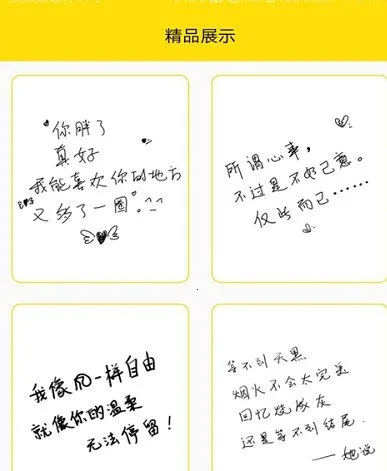 精品展示
你胖了
真好
我能喜欢你的地方
又多了一圈。^_^
所谓心事,
不过是不好己意。
仅此而己……
我像风一样自由
就像你的温柔
无法停留!
等不到天黑
烟火不会太完美
回忆烧成灰
还是等不到结尾
——她说